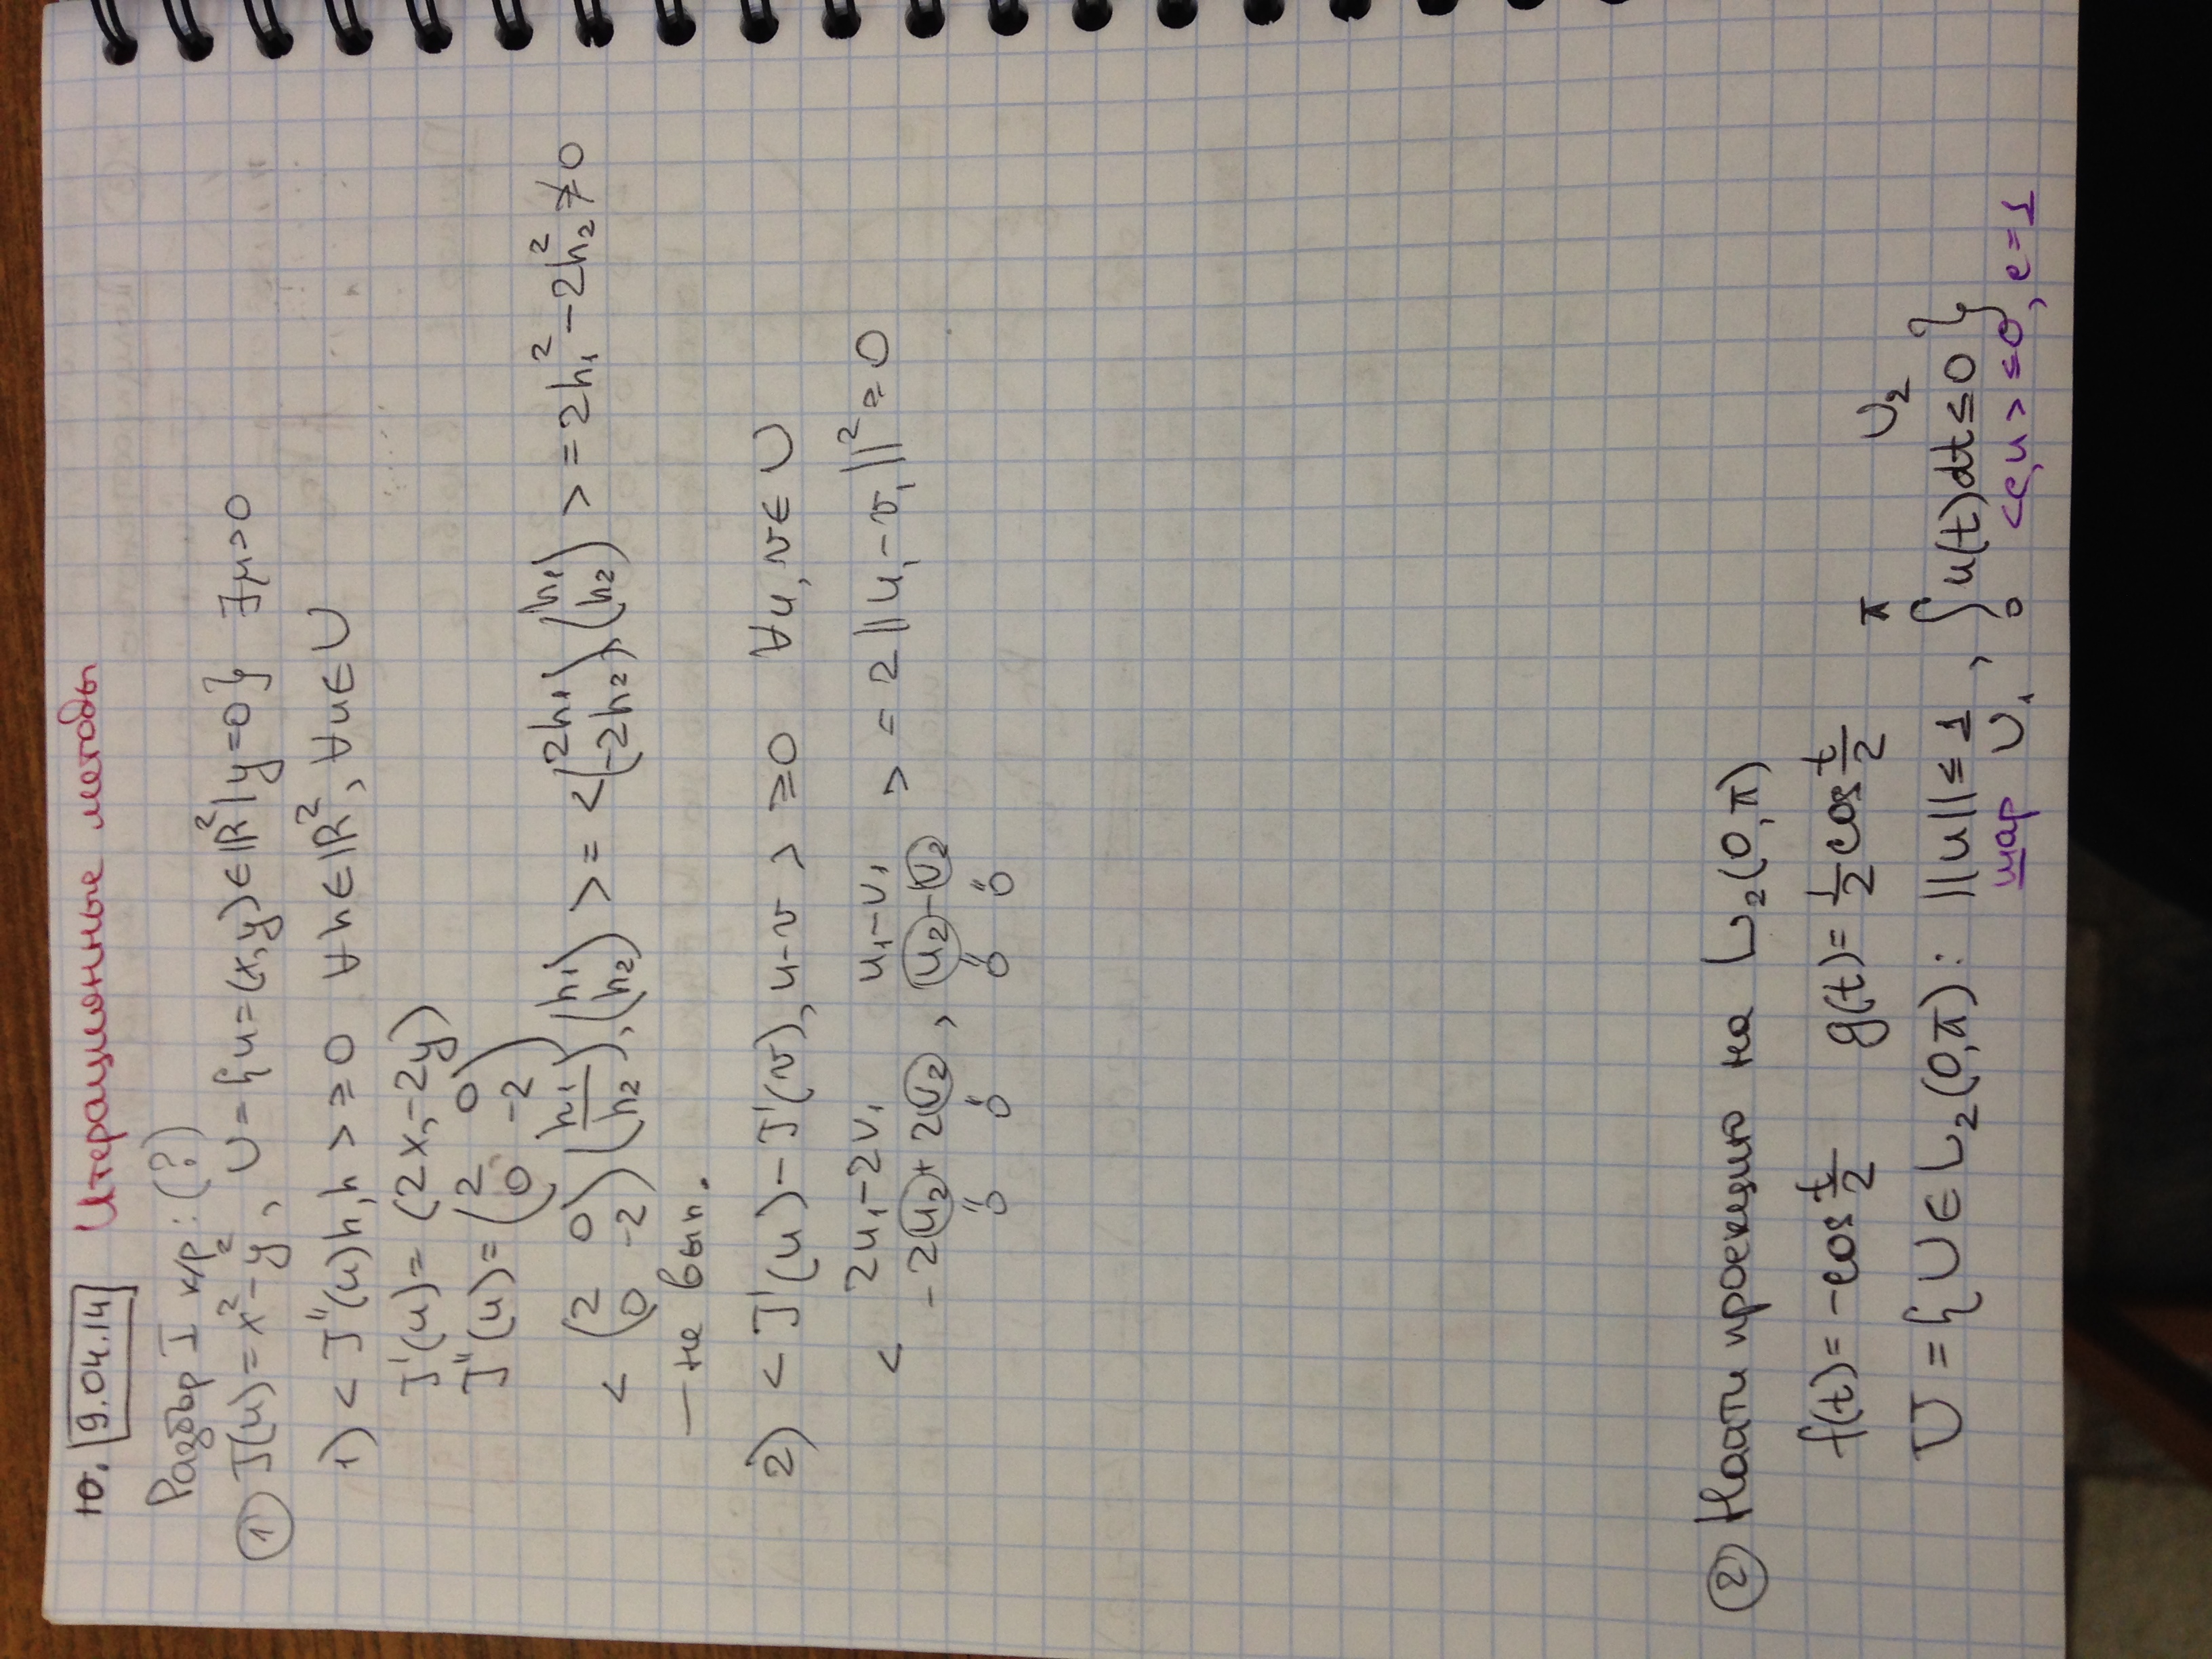 Ю. 9.04.14 Итерационные методы
Разбор I к/р: (?)
① J(u) = x² - y², U = {u = (x, y) ∈ ℝ² | y = 0} ∃μ>0
1) < J''(u)h, h > ≥ 0 ∀h ∈ ℝ², ∀u ∈ U
J'(u) = (2x, -2y)
J''(u) = (2 0 / 0 -2)
< (2 0 / 0 -2)(h₁ / h₂), (h₁ / h₂) > = < (2h₁ / -2h₂), (h₁ / h₂) > = 2h₁² - 2h₂² ≱ 0
— не вып.
2) < J'(u) - J'(v), u - v > ≥ 0 ∀u, v ∈ U
< 2u₁ - 2v₁ u₁ - v₁ > = 2 ||u₁ - v₁||² ≥ 0
-2u₂ + 2v₂ , u₂ - v₂
0 0 0 0
② Найти проекцию на L₂(0, π)
f(t) = -cos t/2 g(t) = 1/2 cos t/2
U = {U ∈ L₂(0, π): ||u|| ≤ 1, ∫₀^π u(t)dt ≤ 0}
шар U₁ U₂ <c, u> ≤ 0, c = 1